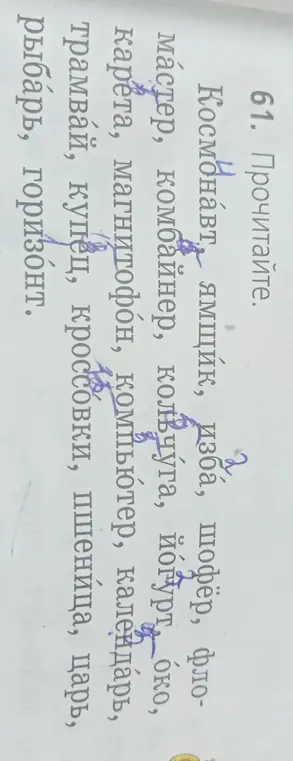 61. Прочитайте.
Космона́вт, ямщи́к, изба́, шофёр, фло-
ма́стер, комба́йнер, кольчу́га, йо́гурт, о́ко,
каре́та, магнитофо́н, компью́тер, календа́рь,
трамва́й, купе́ц, кроссо́вки, пшени́ца, царь,
рыба́рь, горизо́нт.